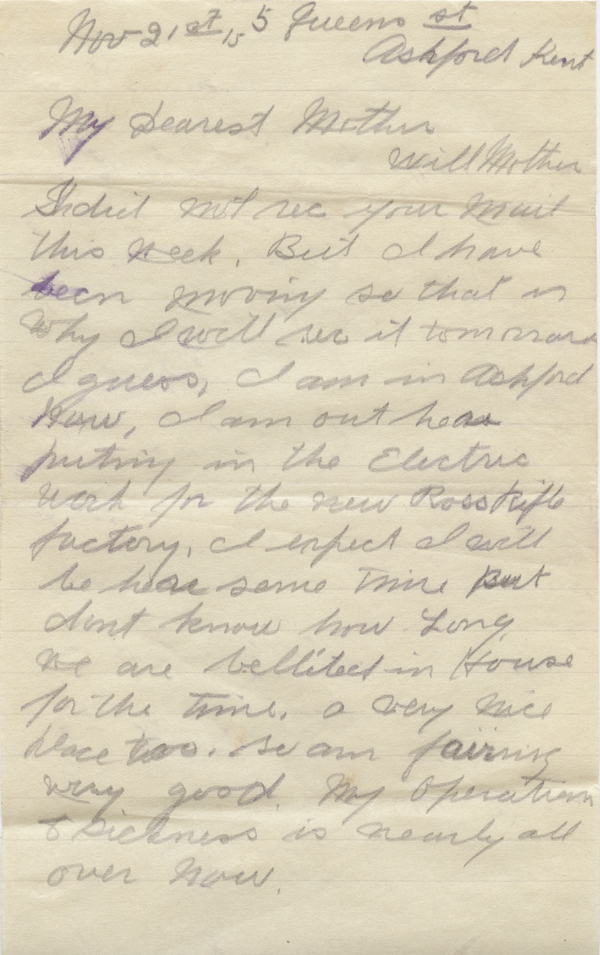 Nov 21st 15 5 Queens st
Ashford Kent
My Dearest Mother
Will Mother
I did not rec your Mail
this week. But I have
been moving so that is
why I will rec it tomorrow
I guess, I am in Ashford
Now, I am out hear
putting in the Electric
work for the new Ross Rifle
factory, I expect I will
be hear some time But
dont know how Long
we are bellited in House
for the time, a very nice
place too. so am fairing
very good. My Operation
& Sickness is nearly all
over Now.